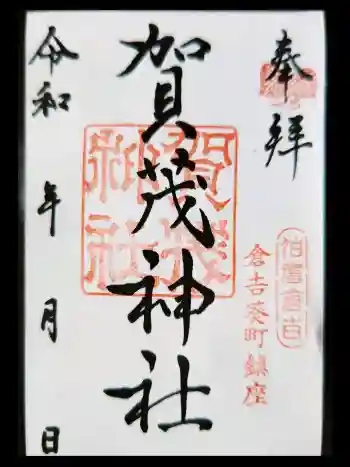 奉拝
伯耆倉吉
倉吉葵町鎮座
賀茂神社
賀茂
神社
令和 年 月 日